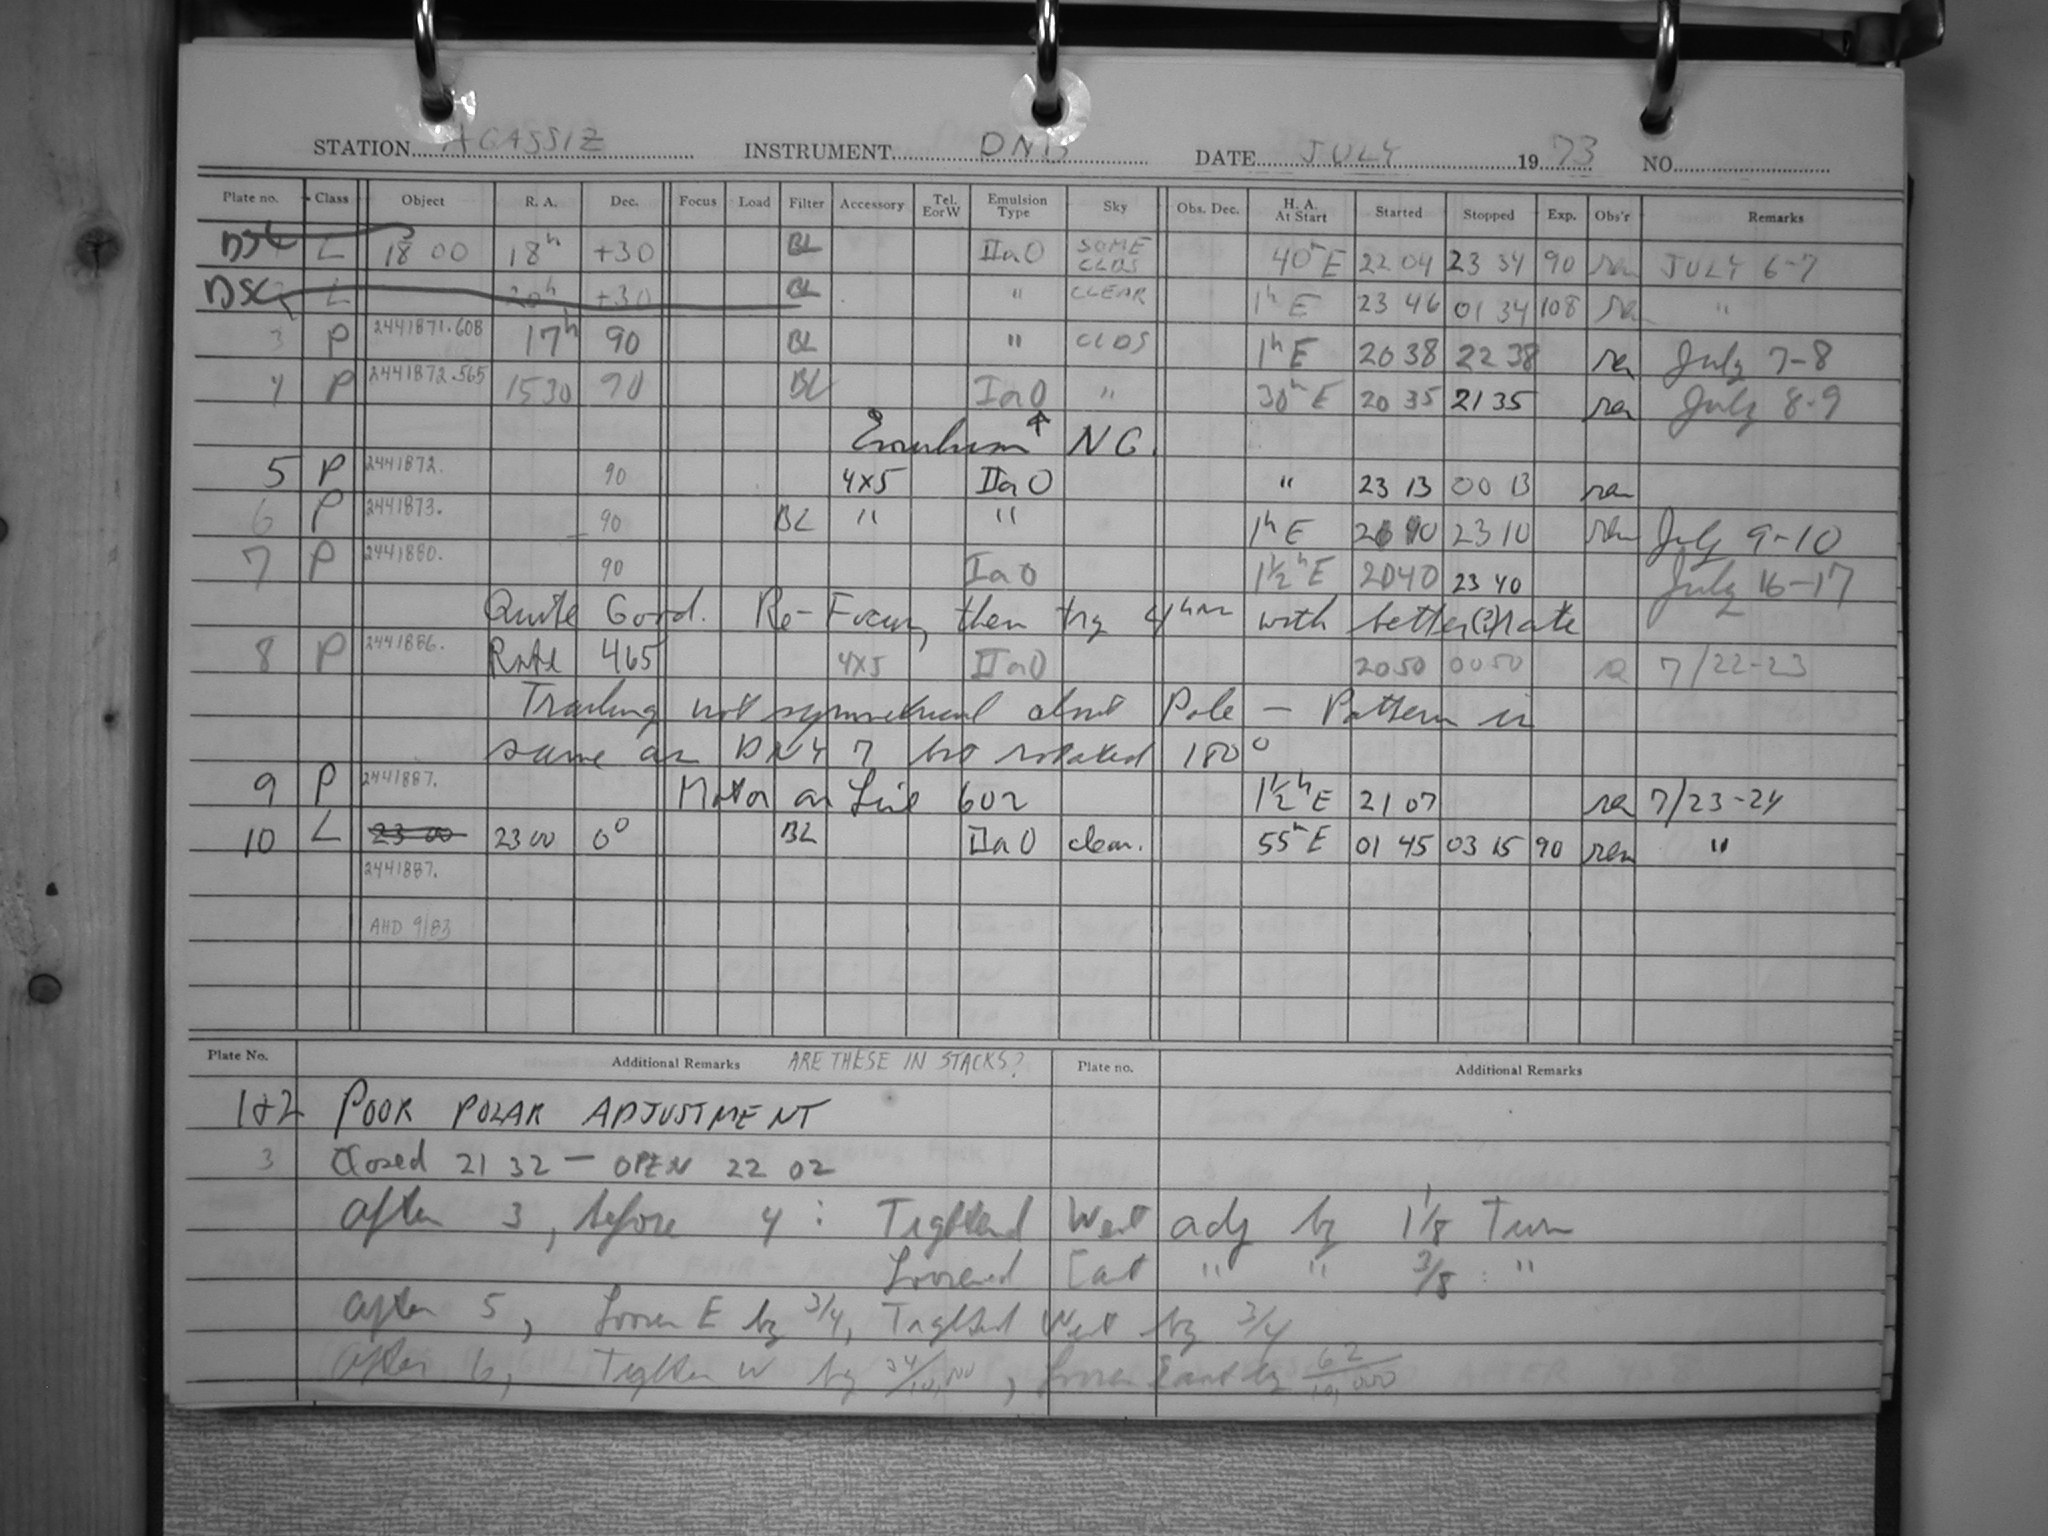 STATION AGASSIZ INSTRUMENT DNB DATE JULY 19 73 NO.
Plate no. Class Object R. A. Dec. Focus Load Filter Accessory Tel. E or W Emulsion Type Sky Obs. Dec. H. A. At Start Started Stopped Exp. Obs'r Remarks
L 18 00 18h +30 BL IIaO SOME CLDS 40m E 22 04 23 34 90 JULY 6-7
L 20h +30 BL " CLEAR 1h E 23 46 01 34 108 "
3 P 2441871.608 17h 90 BL " CLDS 1h E 20 38 22 38 July 7-8
4 P 2441872.565 1530 90 BL IaO " 30m E 20 35 21 35 July 8-9
Emulsion ↑ NG.
5 P 2441872. 90 4x5 IIaO " 23 13 00 13
6 P 2441873. 90 BL " " 1h E 23 10 July 9-10
7 P 2441880. 90 IaO 1½h E 2040 23 40 July 16-17
Quite Good. Re-Focus, then try 4 hrs with better(?) rate
8 P 2441886. Rate 465 4x5 IIaO 2050 0050 7/22-23
Trailing not symmetrical about Pole — Pattern is
same as DNY 7 but rotated 180°
9 P 2441887. Motor on Line 602 1½h E 21 07 7/23-24
10 L 23 00 23 00 0° BL IIaO clear. 55m E 01 45 03 15 90 "
2441887.
AHD 9/83
Plate No. Additional Remarks ARE THESE IN STACKS? Plate no. Additional Remarks
1+2 POOR POLAR ADJUSTMENT
3 Closed 21 32 — OPEN 22 02
After 3, before 4: Tightend West adj by 1 1/8 Turn
Loosened East " " 3/8 "
After 5, Loosen E by 3/4, Tightend West by 3/4
After 6, Tighten W by 34/10,000, Loosen East by 62/10,000